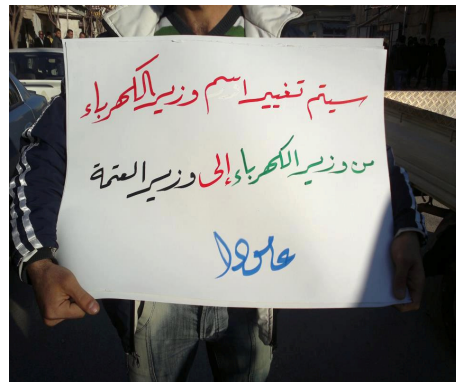 سيتم تغيير اسم وزير الكهرباء
من وزير الكهرباء إلى وزير العتمة
عامودا